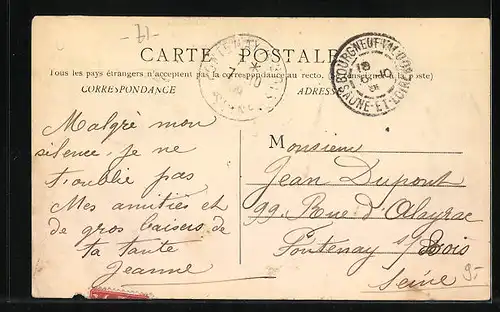 -71-
CARTE POSTALE
Tous les pays étrangers n'acceptent pas la correspondance au recto. (Se renseigner à la poste)
CORRESPONDANCE
ADRESSE
BOURGNEUF-VAL-D'OR
SAONE-ET-LOIRE
Malgré mon
silence, je ne
t'oublie pas
Mes amitiés et
de gros baisers de
ta tante
Jeanne
Monsieur
Jean Dupont
99 Rue d'Alayrac
Fontenay s/Bois
Seine
9-